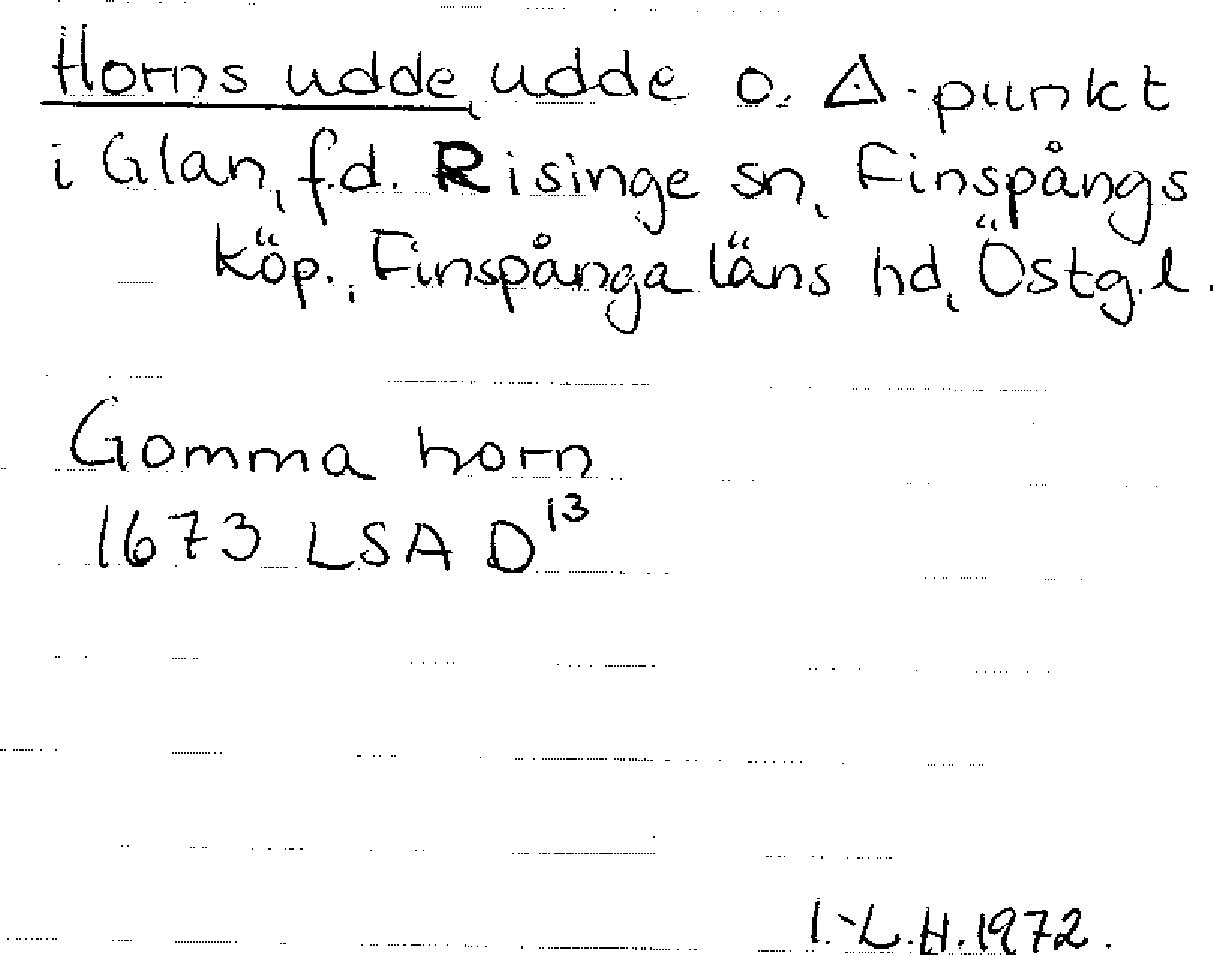 Horns udde, udde o. △-punkt
i Glan, f.d. Risinge sn, Finspångs
köp., Finspånga läns hd, Östg.l.
Gomma horn
1673 LSA D¹³
I.-L.H. 1972.